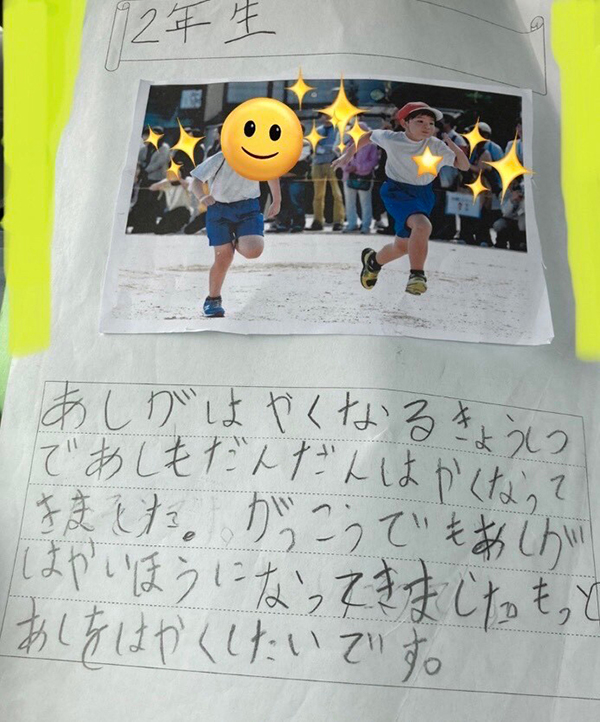 2年生
あしがはやくなるきょうしつ
であしもだんだんはやくなって
きました。がっこうでもあしが
はやいほうになってきました。もっと
あしをはやくしたいです。